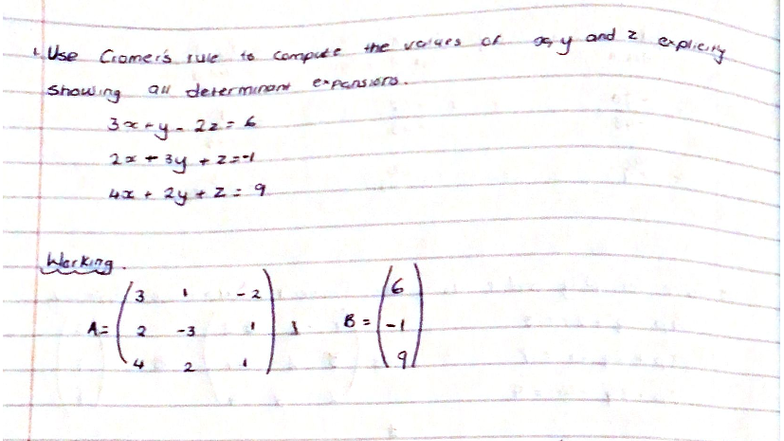 1. Use Cramer's rule to compute the values of x, y and z explicitly
showing all determinant expansions.
3x - y - 2z = 6
2x + 3y + z = -1
4x + 2y + z = 9
Working.
A = (3 1 -2
2 -3 1
4 2 1) ; B = (6
-1
9)